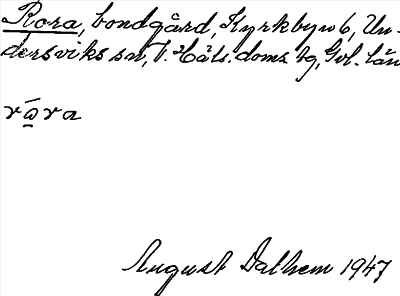 Rora, bondgård, Kyrkbyn 6, Un-
dersviks sn, V. Häls. doms. tg, Gvl. län
rω̄ra
August Dalhem 1947